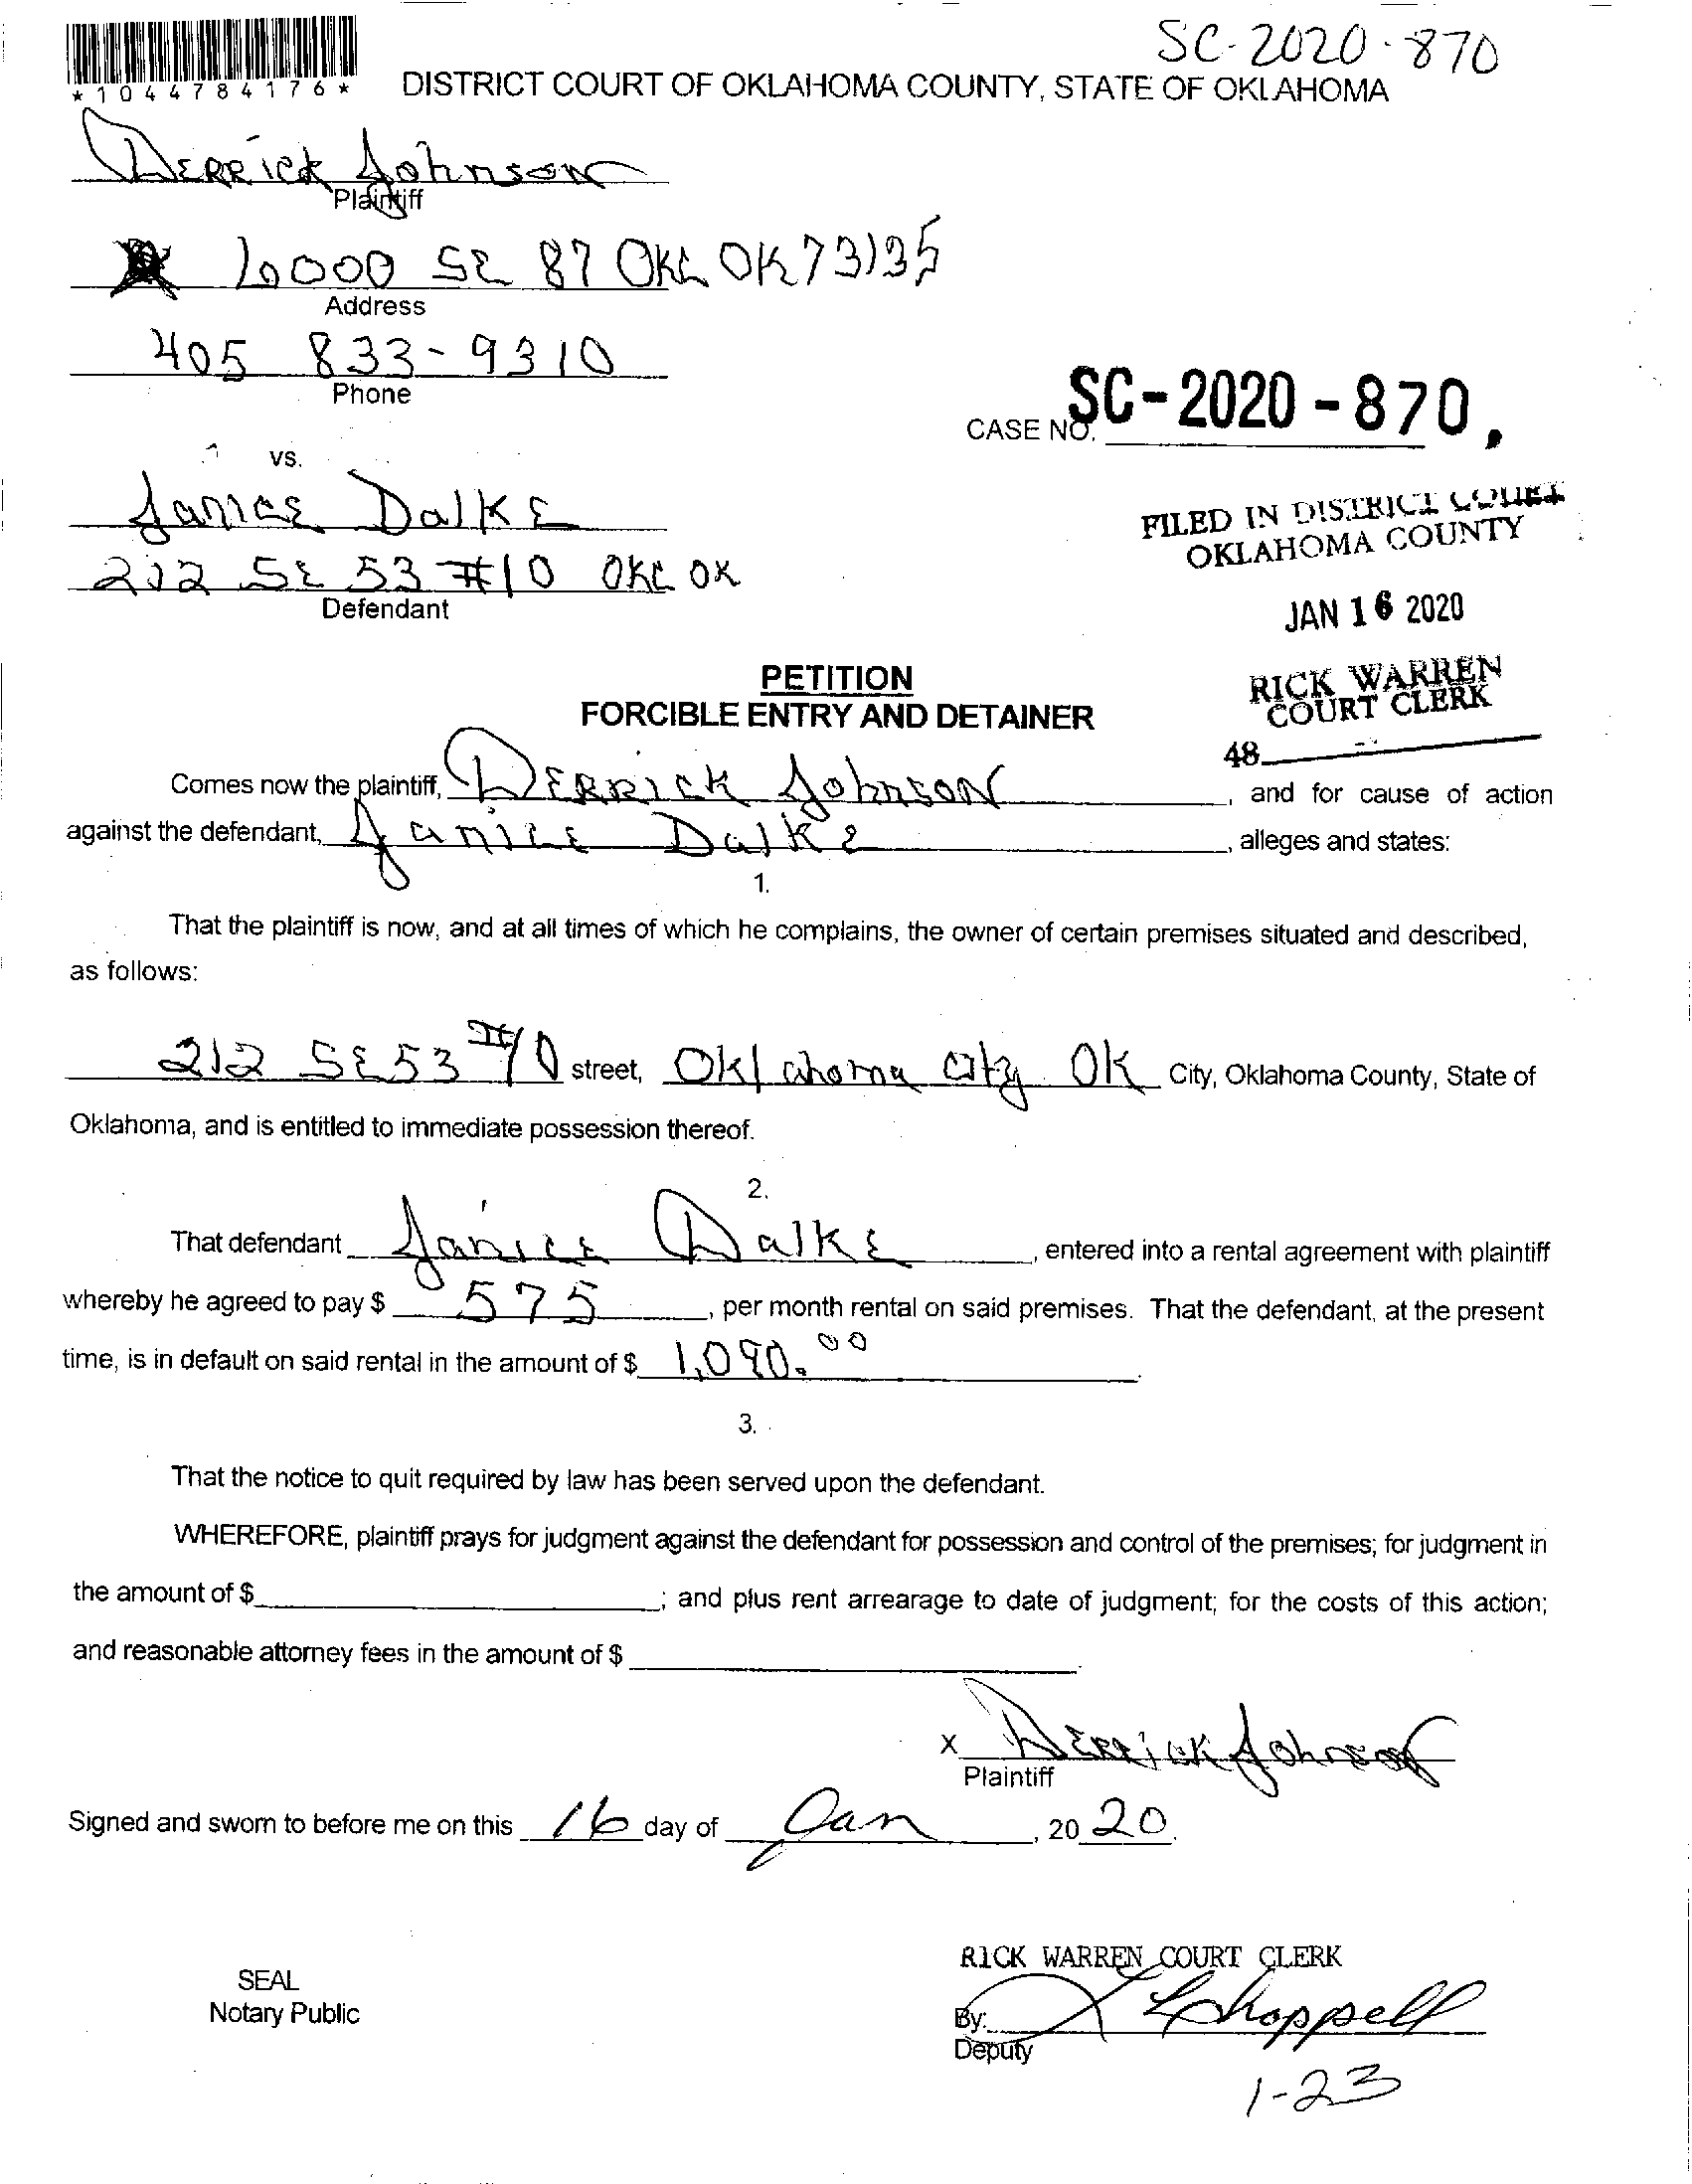 SC-2020-870
*1044784176*
DISTRICT COURT OF OKLAHOMA COUNTY, STATE OF OKLAHOMA
Derrick Johnson
Plaintiff
10000 SE 87 OKC OK 73135
Address
405 833-9310
Phone
CASE NO. SC-2020-870,
vs.
Janice Dalke
212 SE 53 #10 OKC OK
Defendant
FILED IN DISTRICT COURT
OKLAHOMA COUNTY
JAN 16 2020
RICK WARREN
COURT CLERK
48
PETITION
FORCIBLE ENTRY AND DETAINER
Comes now the plaintiff, Derrick Johnson, and for cause of action
against the defendant, Janice Dalke, alleges and states:
1.
That the plaintiff is now, and at all times of which he complains, the owner of certain premises situated and described,
as follows:
212 SE 53 #10 street, Oklahoma City OK City, Oklahoma County, State of
Oklahoma, and is entitled to immediate possession thereof.
2.
That defendant Janice Dalke, entered into a rental agreement with plaintiff
whereby he agreed to pay $ 575, per month rental on said premises. That the defendant, at the present
time, is in default on said rental in the amount of $ 1,090.00.
3.
That the notice to quit required by law has been served upon the defendant.
WHEREFORE, plaintiff prays for judgment against the defendant for possession and control of the premises; for judgment in
the amount of $ ; and plus rent arrearage to date of judgment; for the costs of this action;
and reasonable attorney fees in the amount of $ .
X Derrick Johnson
Plaintiff
Signed and sworn to before me on this 16 day of Jan, 20 20.
RICK WARREN COURT CLERK
SEAL
Notary Public
By: Chappell
Deputy
1-23